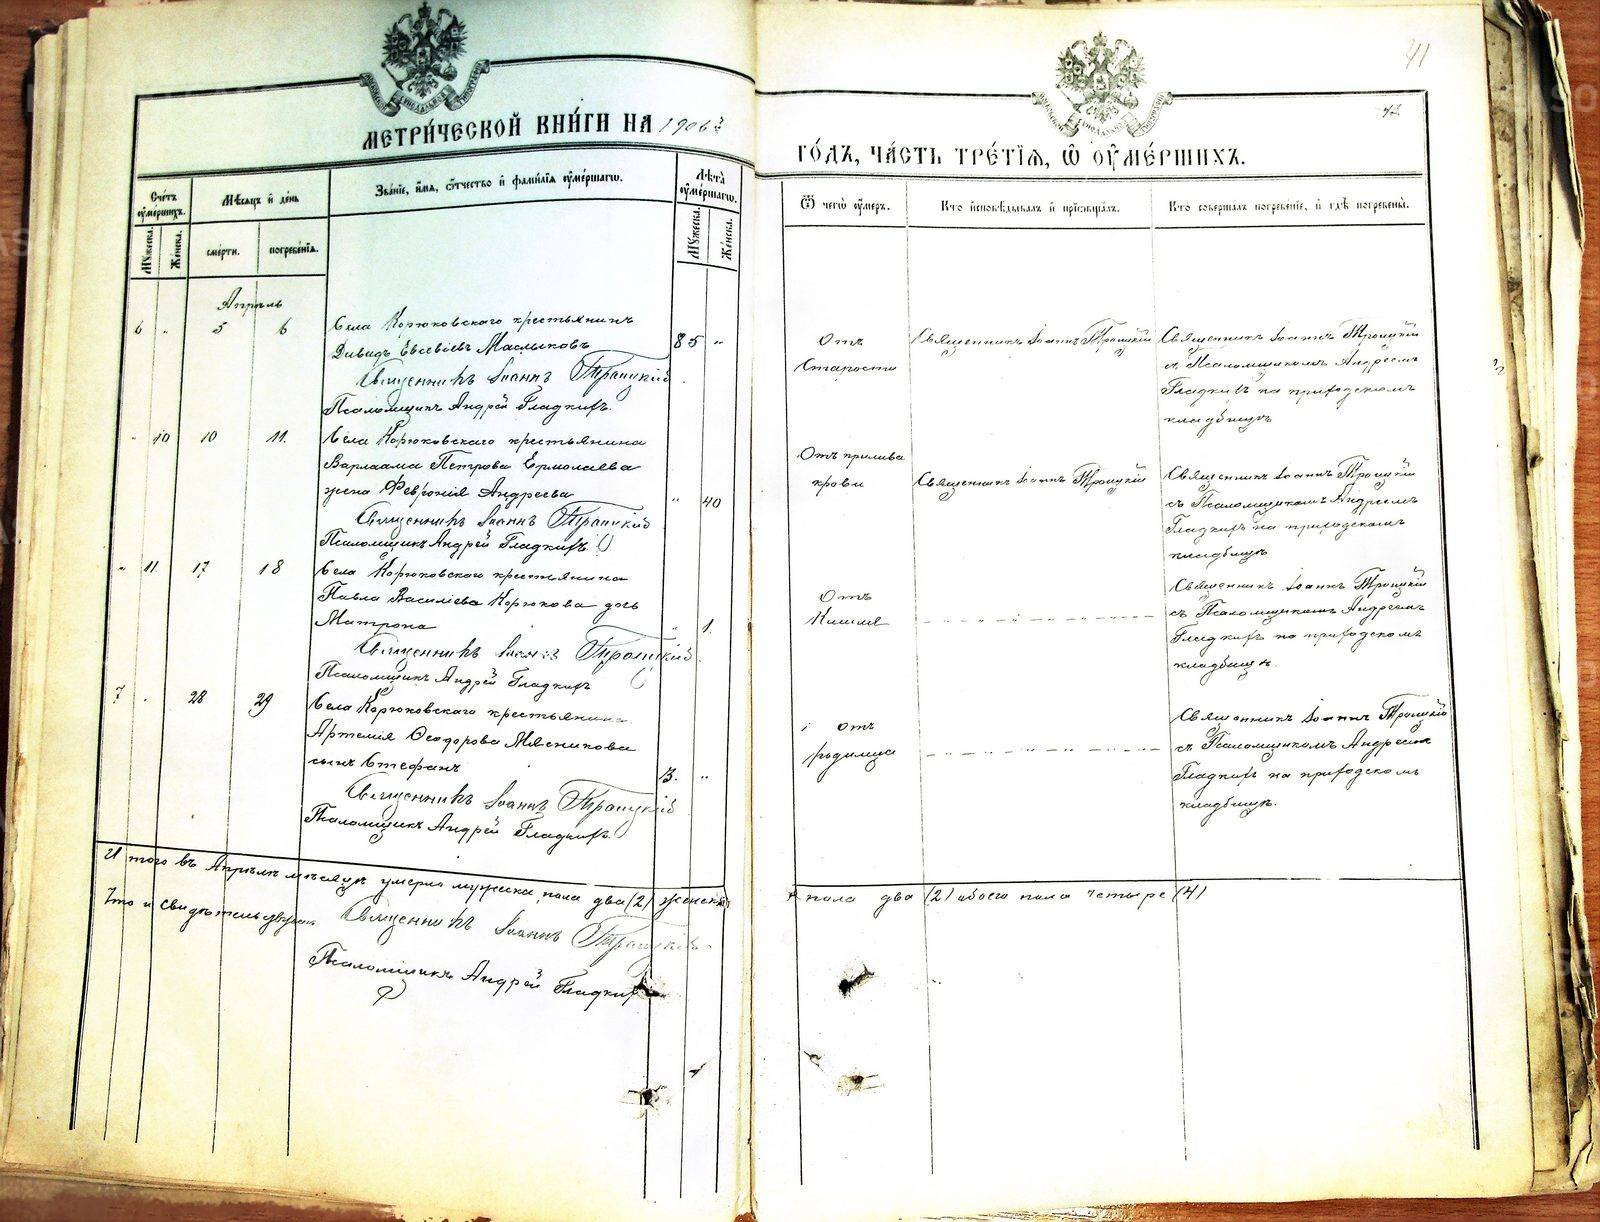 41
42
МЕТРИ́ЧЕСКОЙ КНИ́ГИ НА 1906й
ГО́ДЪ, ЧА́СТЬ ТРЕ́ТІѦ, Ѡ ОУМЕ́РШИХЪ.
Сче́тъ оуме́ршихъ.
Мѣ́сяцъ и де́нь
Зва́ніе, и́мя, о́тчество и фами́лія оуме́ршагω.
Лѣта̀ оуме́ршагω.
Ѿ чегὼ оу́меръ.
Кто̀ исповѣ́дывалъ и прїѡбща́лъ.
Кто̀ соверша́лъ погребе́ніе, и гдѣ̀ погребены̀.
Му́жеска.
Же́нска.
сме́рти.
погребе́нїѧ.
Му́жеска.
Же́нска.
Апрѣль
6 " 5 6 Села Корюковскаго крестьянинъ
Давидъ Евсевіевъ Маслыковъ 85 "
Священникъ Іоаннъ Троицкій
Псаломщикъ Андрей Гладкихъ.
Отъ
старости
Священникъ Іоаннъ Троицкій
Священникъ Іоаннъ Троицкій
съ Псаломщикомъ Андреемъ
Гладкихъ на приходскомъ
кладбищѣ
" 10 10 11. Села Корюковскаго крестьянина
Варлаама Петрова Ермолаева
жена Февронія Андреева " 40
Священникъ Іоаннъ Троицкій
Псаломщикъ Андрей Гладкихъ
Отъ прилива
крови
Священникъ Іоаннъ Троицкій
Священникъ Іоаннъ Троицкій
съ Псаломщикомъ Андреемъ
Гладкихъ на приходскомъ
кладбищѣ
" 11. 17 18 Села Корюковскаго крестьянина
Павла Василіева Корюкова дочь
Матрона " 1.
Священникъ Іоаннъ Троицкій
Псаломщикъ Андрей Гладкихъ
Отъ
Кашля
Священникъ Іоаннъ Троицкій
съ Псаломщикомъ Андреемъ
Гладкихъ на приходскомъ
кладбищѣ.
7 " 28 29 Села Корюковскаго крестьянина
Артемія Ѳеодорова Мясникова
сынъ Стефанъ 3. "
Священникъ Іоаннъ Троицкій
Псаломщикъ Андрей Гладкихъ.
отъ
родимца
Священникъ Іоаннъ Троицкій
съ Псаломщикомъ Андреемъ
Гладкихъ на приходскомъ
кладбищѣ.
Итого въ Апрѣлѣ мѣсяцѣ умерло мужска пола два (2) женска
пола два (2) обоего пола четыре (4)
Что и свидѣтельствуемъ Священникъ Іоаннъ Троицкій
Псаломщикъ Андрей Гладкихъ